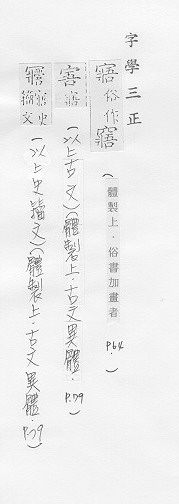 字學三正
寤俗作窹(體製上．俗書加畫者 P.64)
(以上古文)(體製上．古文異體．P.79)
(以上史籀文)(體製上．古文異體．P.79)